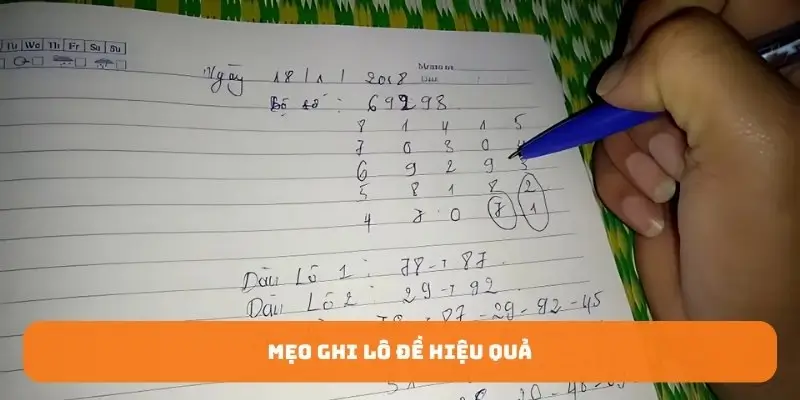 Tu We Th Fr Sa Su
Ngày 18/1/2018
Bộ số: 69298
8 1 4 1 5
7 0 3 0 4
6 9 2 9 3
5 8 1 8 2
4 7 0 7 1
Dàu Lô 1: 78 → 87
Dàu Lô 2: 29 → 92
87 - 29 - 92 - 45
MẸO GHI LÔ ĐỀ HIỆU QUẢ